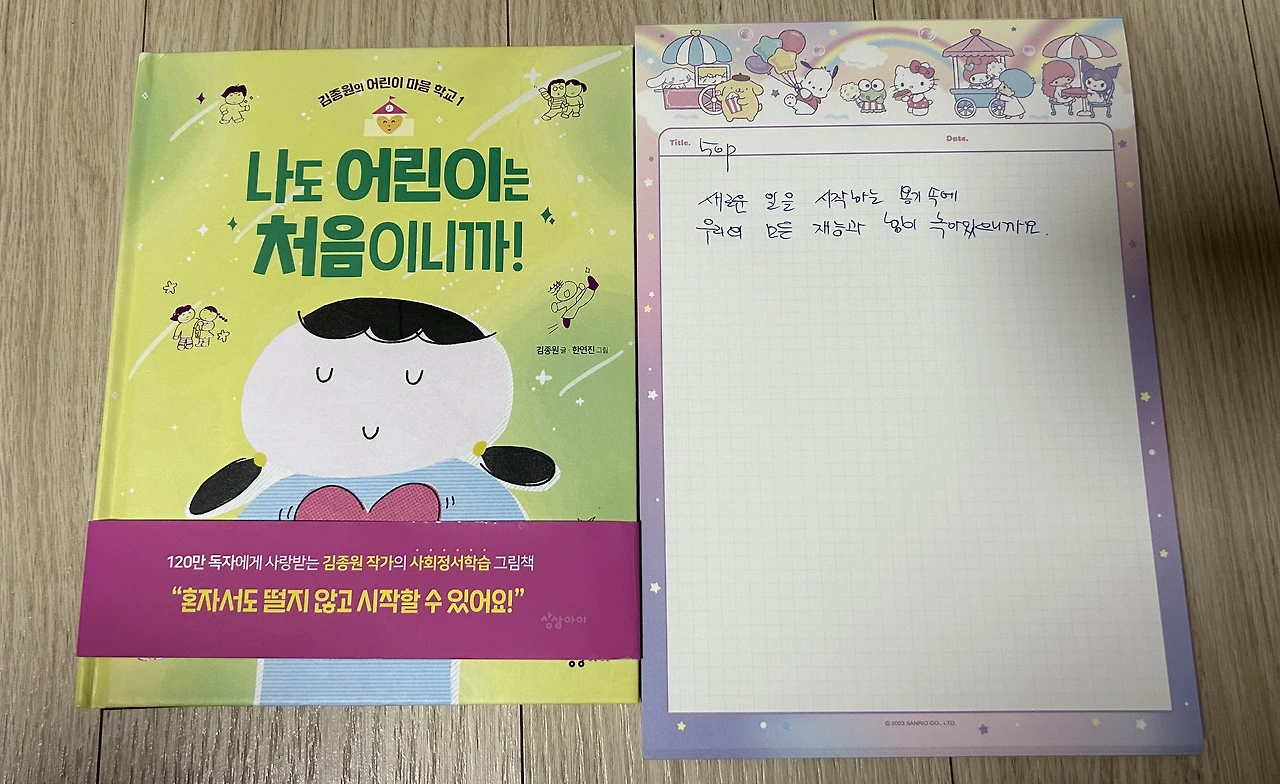 김종원의 어린이 마음 학교 1
나도 어린이는
처음이니까!
김종원 글 · 한연진 그림
120만 독자에게 사랑받는 김종원 작가의 사회정서학습 그림책
“혼자서도 떨지 않고 시작할 수 있어요!”
상상아이
Title.
50p
Date.
새로운 일을 시작하는 용기 속에
우리의 모든 재능과 힘이 녹아있으니까요.
© 2023 SANRIO CO., LTD.